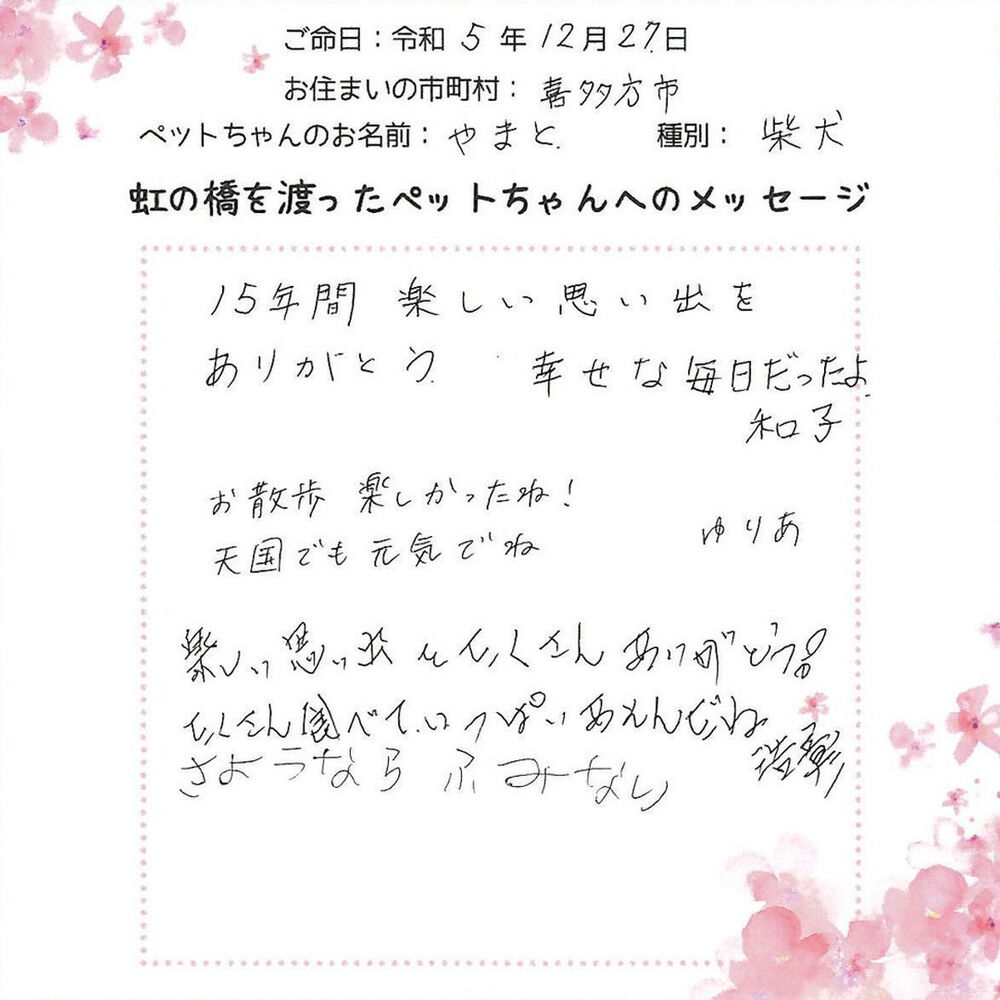 ご命日：令和 5 年 12月 27.日
お住まいの市町村： 喜多方市
ペットちゃんのお名前： やまと. 種別： 柴犬
虹の橋を渡ったペットちゃんへのメッセージ
15年間 楽しい思い出を
ありがとう. 幸せな毎日だったよ.
和子
お散歩 楽しかったね！
天国でも元気でね ゆりあ
楽しい思い出をたくさんありがとう！
たくさん食べて、いっぱいあそんだね
さようなら ふみなり